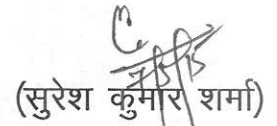 (सुरेश कुमार शर्मा)